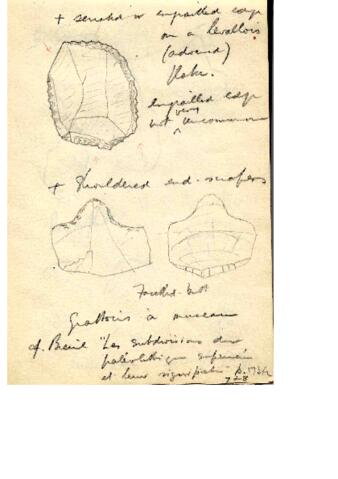 + serrated or engrailled edge
on a Levallois
(advanced)
flake.
engrailled edge
very
not uncommon
+ Shouldered end-scrapers
Facetted butt
Grattoirs à museau
cf. Breuil "Les subdivisions du
paléolithique supérieur
et leur signification" p.
7-28